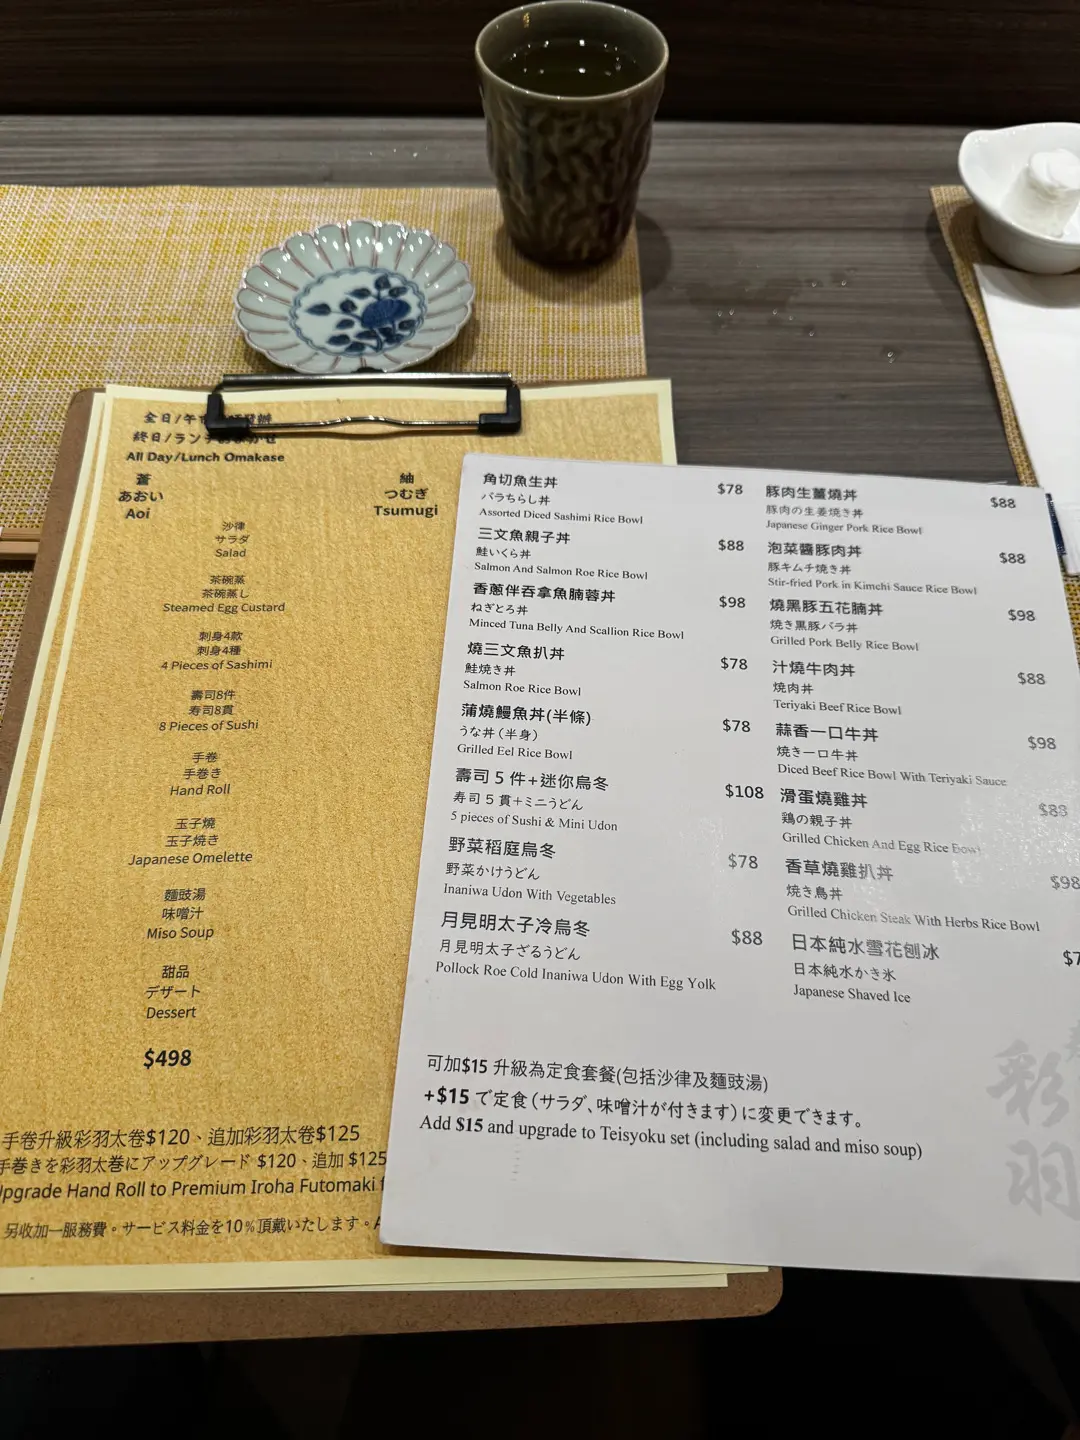 全日/午
終日/ランチおまかせ
All Day/Lunch Omakase
蒼
あおい
Aoi
紬
つむぎ
Tsumugi
沙律
サラダ
Salad
茶碗蒸
茶碗蒸し
Steamed Egg Custard
刺身4款
刺身4種
4 Pieces of Sashimi
壽司8件
寿司8貫
8 Pieces of Sushi
手卷
手巻き
Hand Roll
玉子燒
玉子焼き
Japanese Omelette
麵豉湯
味噌汁
Miso Soup
甜品
デザート
Dessert
$498
手卷升級彩羽太卷$120、追加彩羽太卷$125
手巻きを彩羽太巻にアップグレード $120、追加 $125
Upgrade Hand Roll to Premium Iroha Futomaki
另收加一服務費。サービス料金を10%頂戴いたします。
角切魚生丼 $78
バラちらし丼
Assorted Diced Sashimi Rice Bowl
三文魚親子丼 $88
鮭いくら丼
Salmon And Salmon Roe Rice Bowl
香蔥伴吞拿魚腩蓉丼 $98
ねぎとろ丼
Minced Tuna Belly And Scallion Rice Bowl
燒三文魚扒丼 $78
鮭焼き丼
Salmon Roe Rice Bowl
蒲燒鰻魚丼(半條) $78
うな丼(半身)
Grilled Eel Rice Bowl
壽司 5 件+迷你烏冬 $108
寿司 5 貫+ミニうどん
5 pieces of Sushi & Mini Udon
野菜稻庭烏冬 $78
野菜かけうどん
Inaniwa Udon With Vegetables
月見明太子冷烏冬 $88
月見明太子ざるうどん
Pollock Roe Cold Inaniwa Udon With Egg Yolk
豚肉生薑燒丼 $88
豚肉の生姜焼き丼
Japanese Ginger Pork Rice Bowl
泡菜醬豚肉丼 $88
豚キムチ焼き丼
Stir-fried Pork in Kimchi Sauce Rice Bowl
燒黑豚五花腩丼 $98
焼き黒豚バラ丼
Grilled Pork Belly Rice Bowl
汁燒牛肉丼 $88
焼肉丼
Teriyaki Beef Rice Bowl
蒜香一口牛丼 $98
焼き一口牛丼
Diced Beef Rice Bowl With Teriyaki Sauce
滑蛋燒雞丼 $88
鶏の親子丼
Grilled Chicken And Egg Rice Bowl
香草燒雞扒丼 $98
焼き鳥丼
Grilled Chicken Steak With Herbs Rice Bowl
日本純水雪花刨冰 $7
日本純水かき氷
Japanese Shaved Ice
可加$15 升級為定食套餐(包括沙律及麵豉湯)
+$15 で定食(サラダ、味噌汁が付きます)に変更できます。
Add $15 and upgrade to Teisyoku set (including salad and miso soup)
彩羽